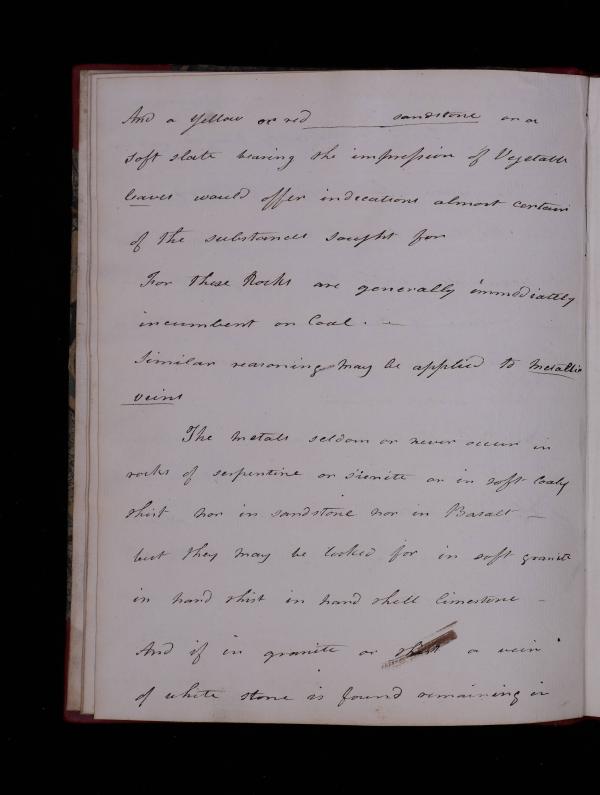 And a yellow or red sandstone or a
soft slate bearing the impression of Vegetable
leaves would offer indications almost certain
of the substances sought for
For these Rocks are generally immediately
incumbent on Coal. —
Similar reasoning may be applied to metallic
veins
The metals seldom or never occur in
rocks of serpentine or sienite or in soft Coaly
shist nor in sandstone nor in Basalt —
but they may be looked for in soft granite
in hard shist in hard shell limestone —
And if in granite or shist a vein
of white stone is found remaining in